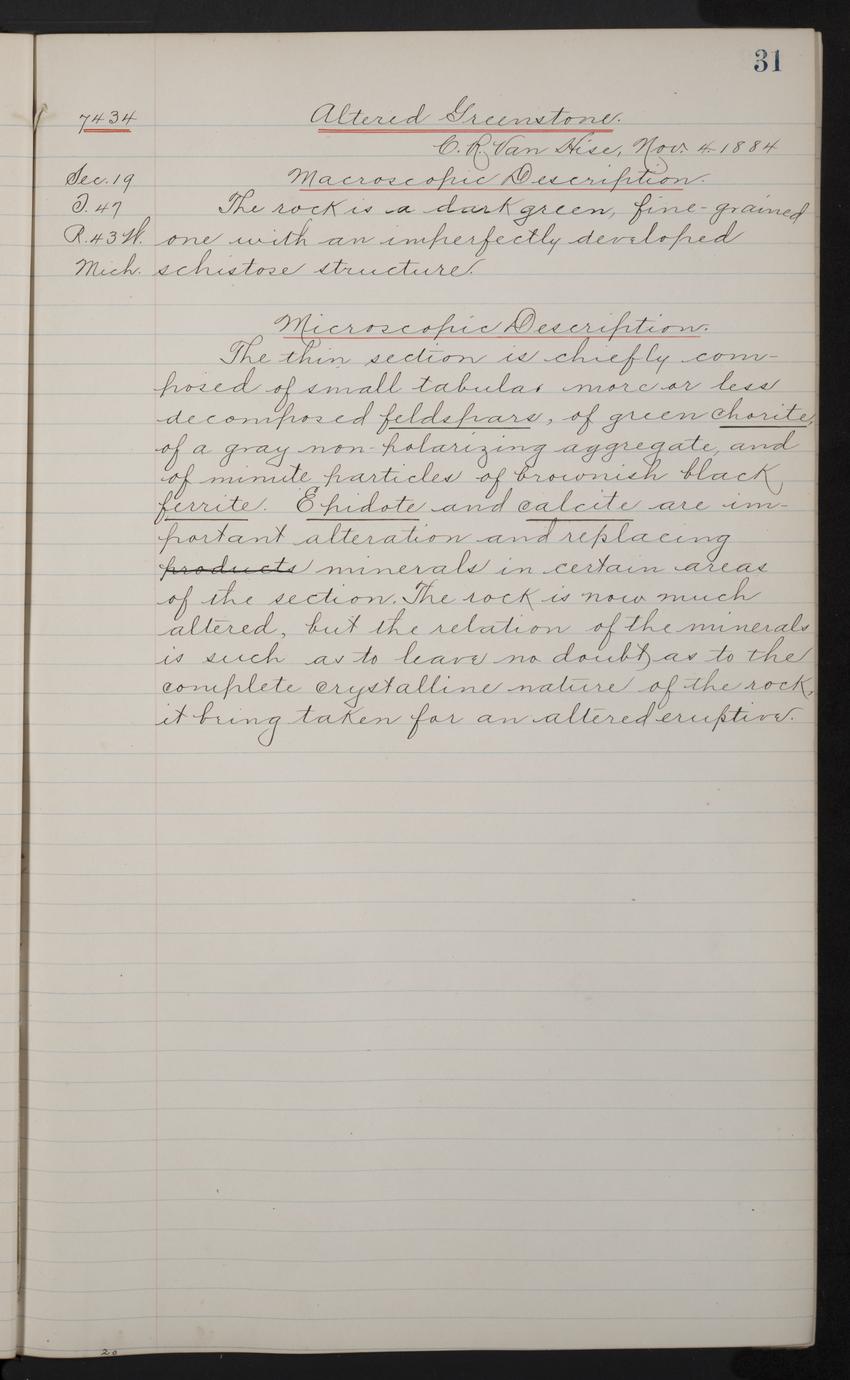 31
7434 Altered Greenstone.
C. R. Van Hise, Nov. 4 1884
Sec. 19 Macroscopic Description.
T. 47 The rock is a dark green, fine-grained
R. 43 W. one with an imperfectly developed
Mich. schistose structure.
Microscopic Description.
The thin section is chiefly com-
posed of small tabular more or less
decomposed feldspars, of green chorite,
of a gray non-polarizing aggregate, and
of minute particles of brownish black
ferrite. Epidote and calcite are im-
portant alteration and replacing
products minerals in certain areas
of the section. The rock is now much
altered, but the relation of the minerals
is such as to leave no doubt as to the
complete crystalline nature of the rock,
it being taken for an altered eruptive.
20